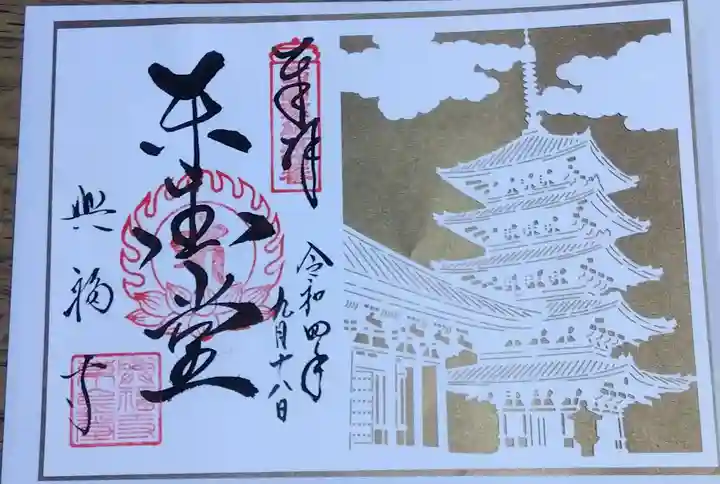 奉拝
令和四年
九月十八日
東金堂
興福寺